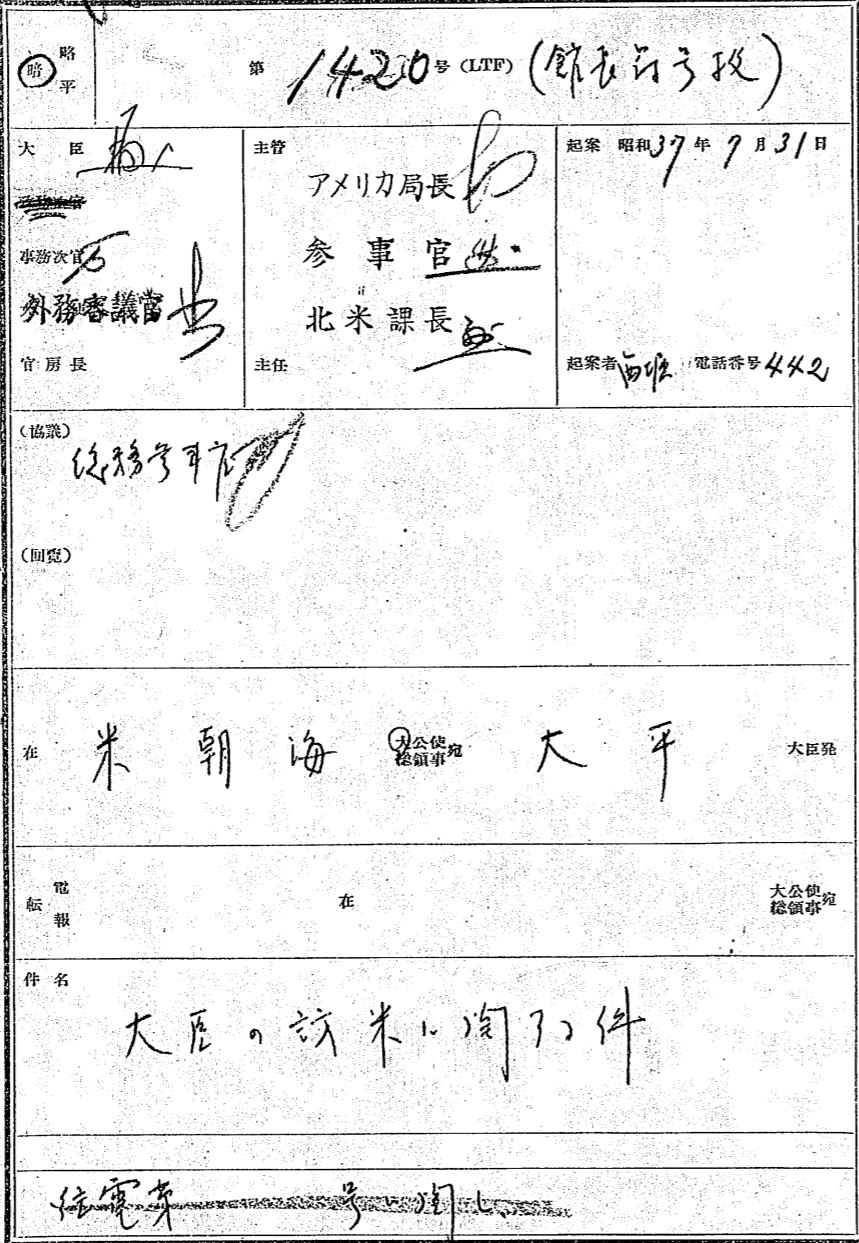 暗 略 平
第1420号 (LTF) (館長符号扱)
大臣
事務次官
外務審議官
官房長
主管
アメリカ局長
参事官
北米課長
主任
起案 昭和37年7月31日
起案者 西堀 電話番号 442
(協議)
総務参事官
(回覧)
在 米 朝海 大公使 総領事 宛 大平 大臣発
転電 報 在 大公使 総領事 宛
件名
大臣の訪米に関する件
往電第 号に関し